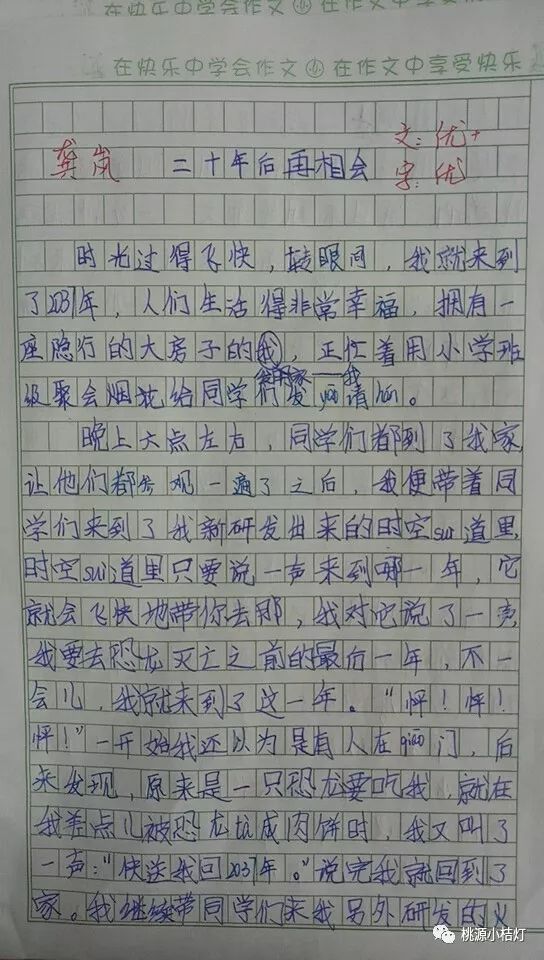 在快乐中学会作文 小 在作文中享受快乐
在快乐中学会作文 小 在作文中享受快乐
文：优+
龚岚 二十年后再相会
字：优
时光过得飞快，转眼间，我就来到
了2037年，人们生活得非常幸福，拥有一
座隐行的大房子的我，正忙着用小学班
级聚会烟花给同学们发yāo请hán。
晚上六点左右，同学们都到了我家，
让他们都参观一遍了之后，我便带着同
学们来到了我新研发出来的时空suì道里，
时空suì道里只要说一声来到哪一年，它
就会飞快地带你去那，我对它说了一声
我要去恐龙灭亡之前的最后一年，不一
会儿，我就来到了这一年。“怦！怦！
怦！”一开始我还以为是有人在qiāo门，后
来发现，原来是一只恐龙要吃我，就在
我差点儿被恐龙 成肉饼时，我又叫了
一声：“快送我回2037年。”说完我就回到了
家。我继续带同学们来我另外研发的
桃源小桔灯